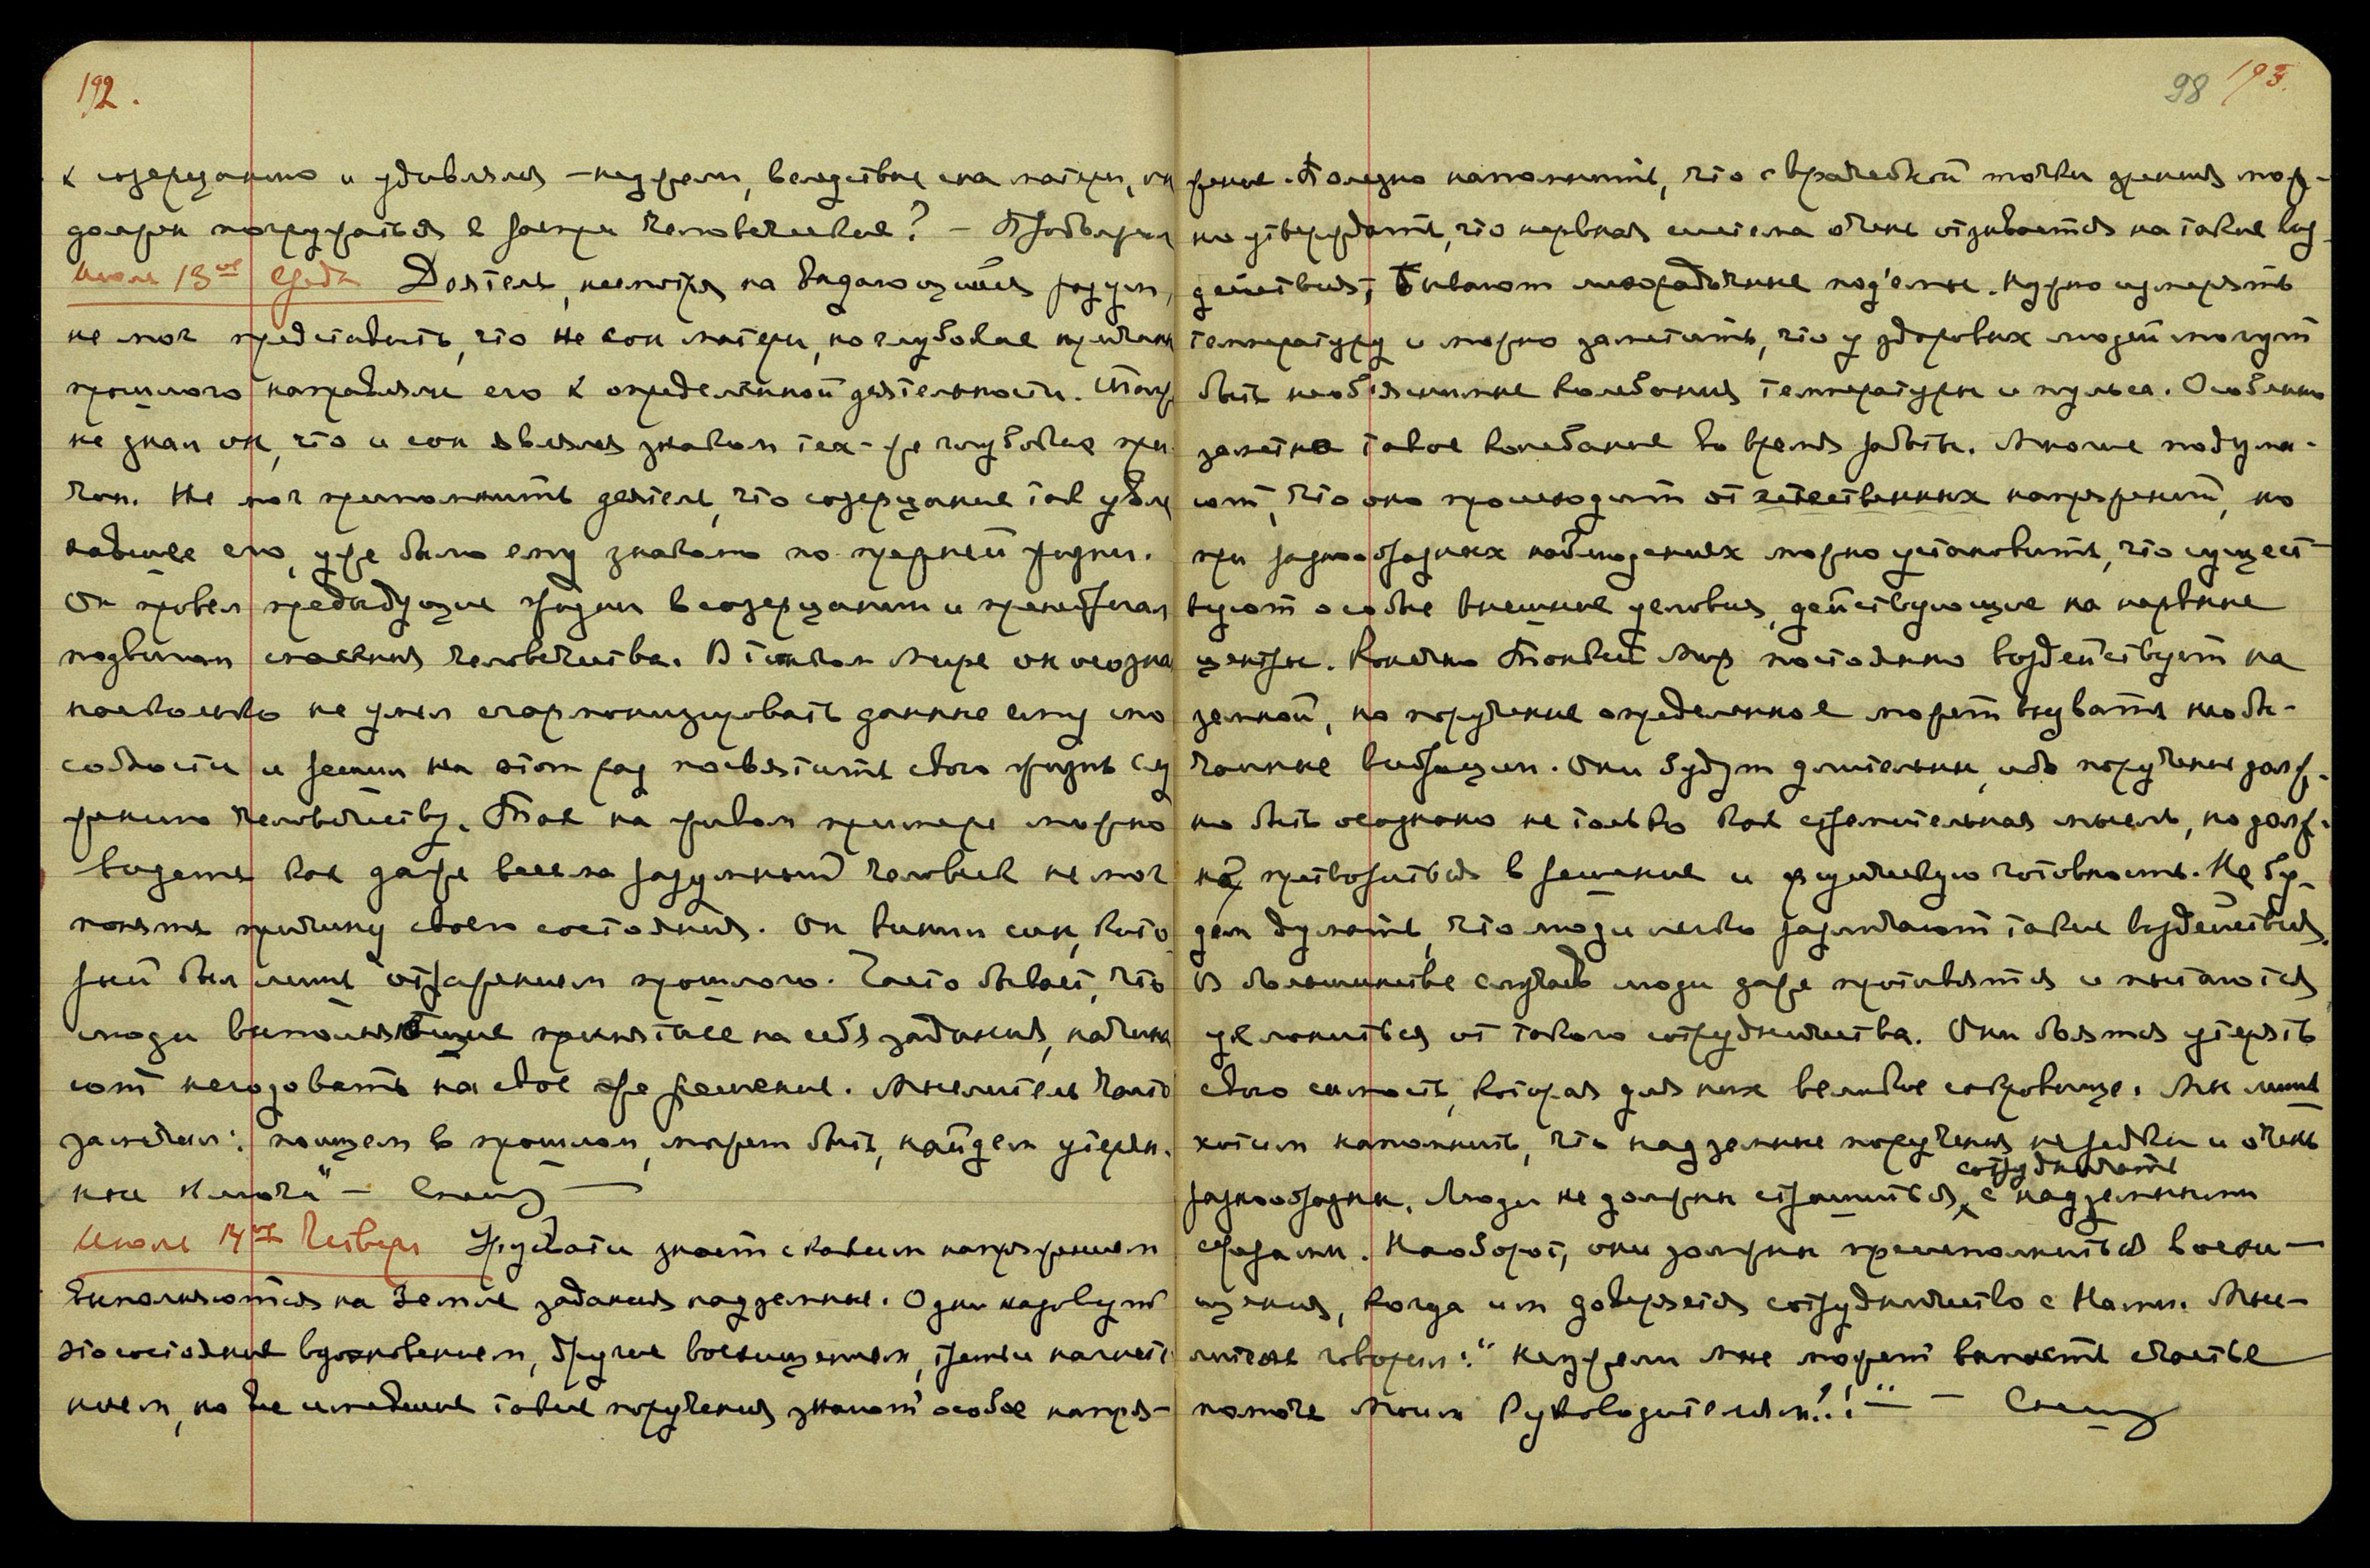 192.
к созерцанию и удивлялся — неужели, вследствие сна матери, он
должен погружаться в заботы человеческие? —
Июль 13ое Среда Деятель, несмотря на выдающийся разум,
не мог представить, что не сон матери, но глубокие причины
прошлого направляли его к определённой деятельности. Также
не знал он, что и сон являлся знаком тех-же глубоких при
чин. Не мог припомнить деятель, что созерцание так увле
кавшее его, уже было ему знакомо по прежней жизни.
Он провел предыдущие жизни в созерцании и пренебрегал
подвигом спасения человечества. В тонком Мире он осознал
насколько не умел сгармонизировать данные ему спо
собности и решил на этот раз посвятить свою жизнь слу
жению человечеству. Так на живом примере можно
видеть как даже весьма разумный человек не мог
понять причину своего состояния. Он винил сон, кото
рый был лишь отражением прошлого. Часто бывает, что
люди выполняющие принятые на себя задания, начина
ют негодовать на своё же решение. Мыслитель часто
замечал: поищем в прошлом, может быть, найдем утерян.
ные ключи" — Спешу —
Июль 14ое Четверг Урусвати знает с каким напряжением
выполняются на Земле задания надземные. Одни назовут
это состояние вдохновением, другие восхищением, третьи натиск
нием, но все имевшие такие поручения знают особое напря-
98 193.
жение. Полезно напомнить, что с врачебной точки зрения мож-
но утверждать, что нервная система очень отзывается на такие воз
действия; Бывают лихорадочные под'емы. Нужно измерять
температуру и можно заметить, что у здоровых людей могут
быть необъяснимые колебания температуры и пульса. Особенно
заметно такое колебание во время работы. Многие подума-
ют, что оно происходит от естественных напряжений, но
при разнообразных наблюдениях можно установить, что сущест
вуют особые внешние условия, действующие на нервные
центры. Конечно Тонкий Мир постоянно воздействует на
земной, но поручение определенное может вызвать необы-
чайные вибрации. Они будут длительны, ибо поручение долж-
но быть осознано не только как стремительная мысль, но долж-
но претвориться в решение и физическую готовность. Не бу-
дем думать, что люди легко различают такие воздействия.
В большинстве случаев люди даже противятся и пытаются
уклониться от такого сотрудничества. Они боятся утерять
свою самость, которая для них великое сокровище. Мы лишь
хотим напомнить, что надземные поручения не редки и очень
сотрудничать
разнообразны. Люди не должны страшиться с надземными
сферами. Наоборот, они должны преисполниться восхи-
щения, когда им доверяется сотрудничество с Нами. Мы-
слитель говорил: "Неужели мне может выпасть счастье
помочь Моим Руководителям!!" — Спешу